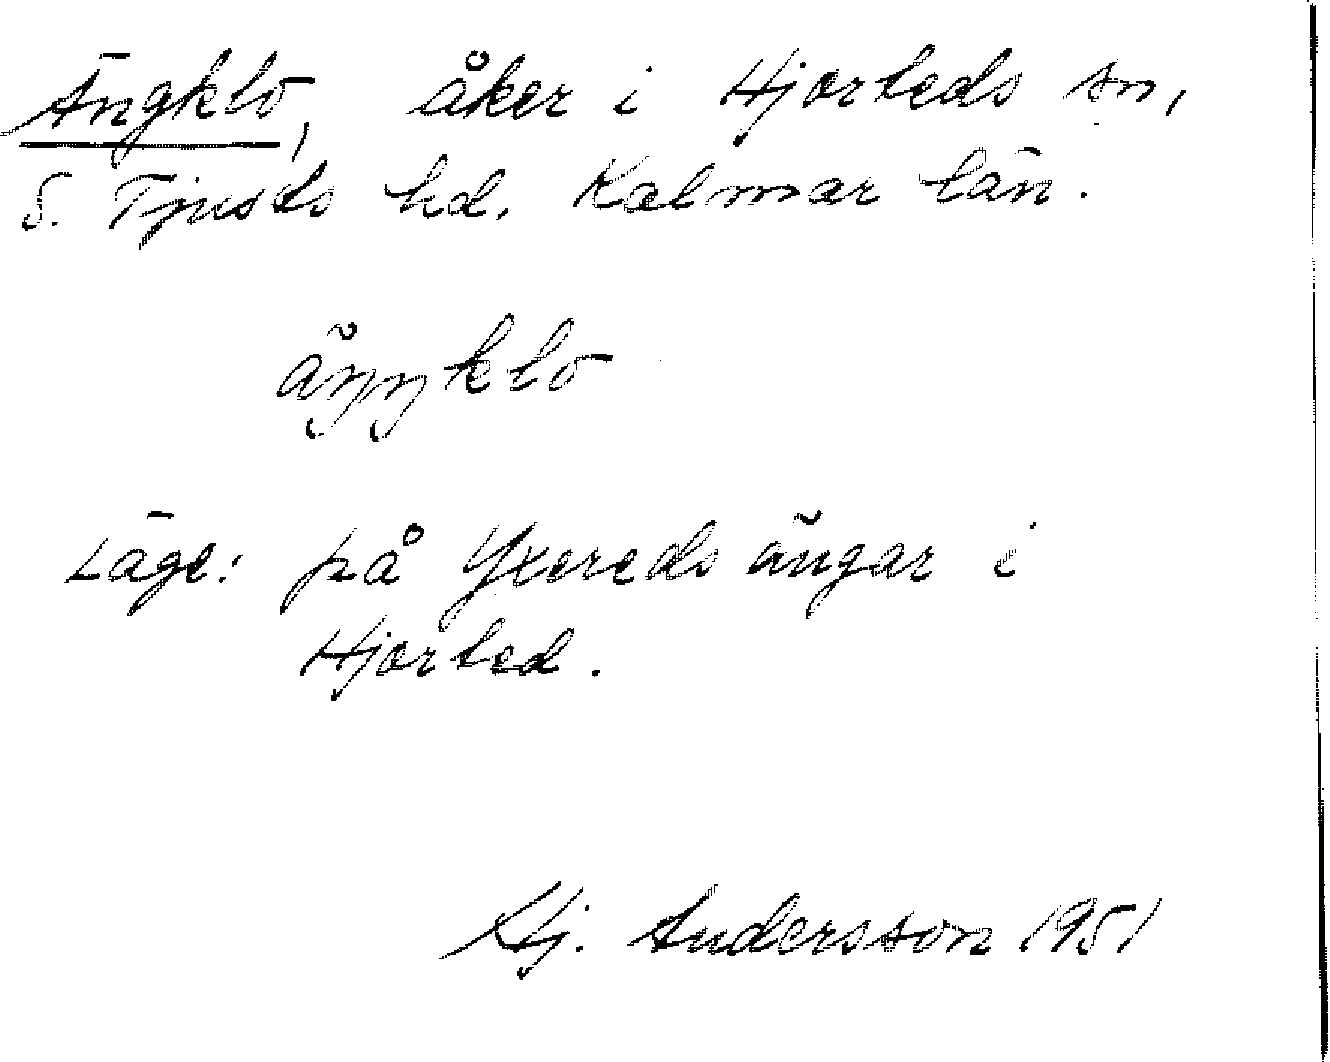 Ängklo, åker i Hjorteds sn,
S. Tjusts hd. Kalmar län.
äŋŋklo
Läge: på Yxereds ängar i
Hjorted.
Hj. Andersson 1951